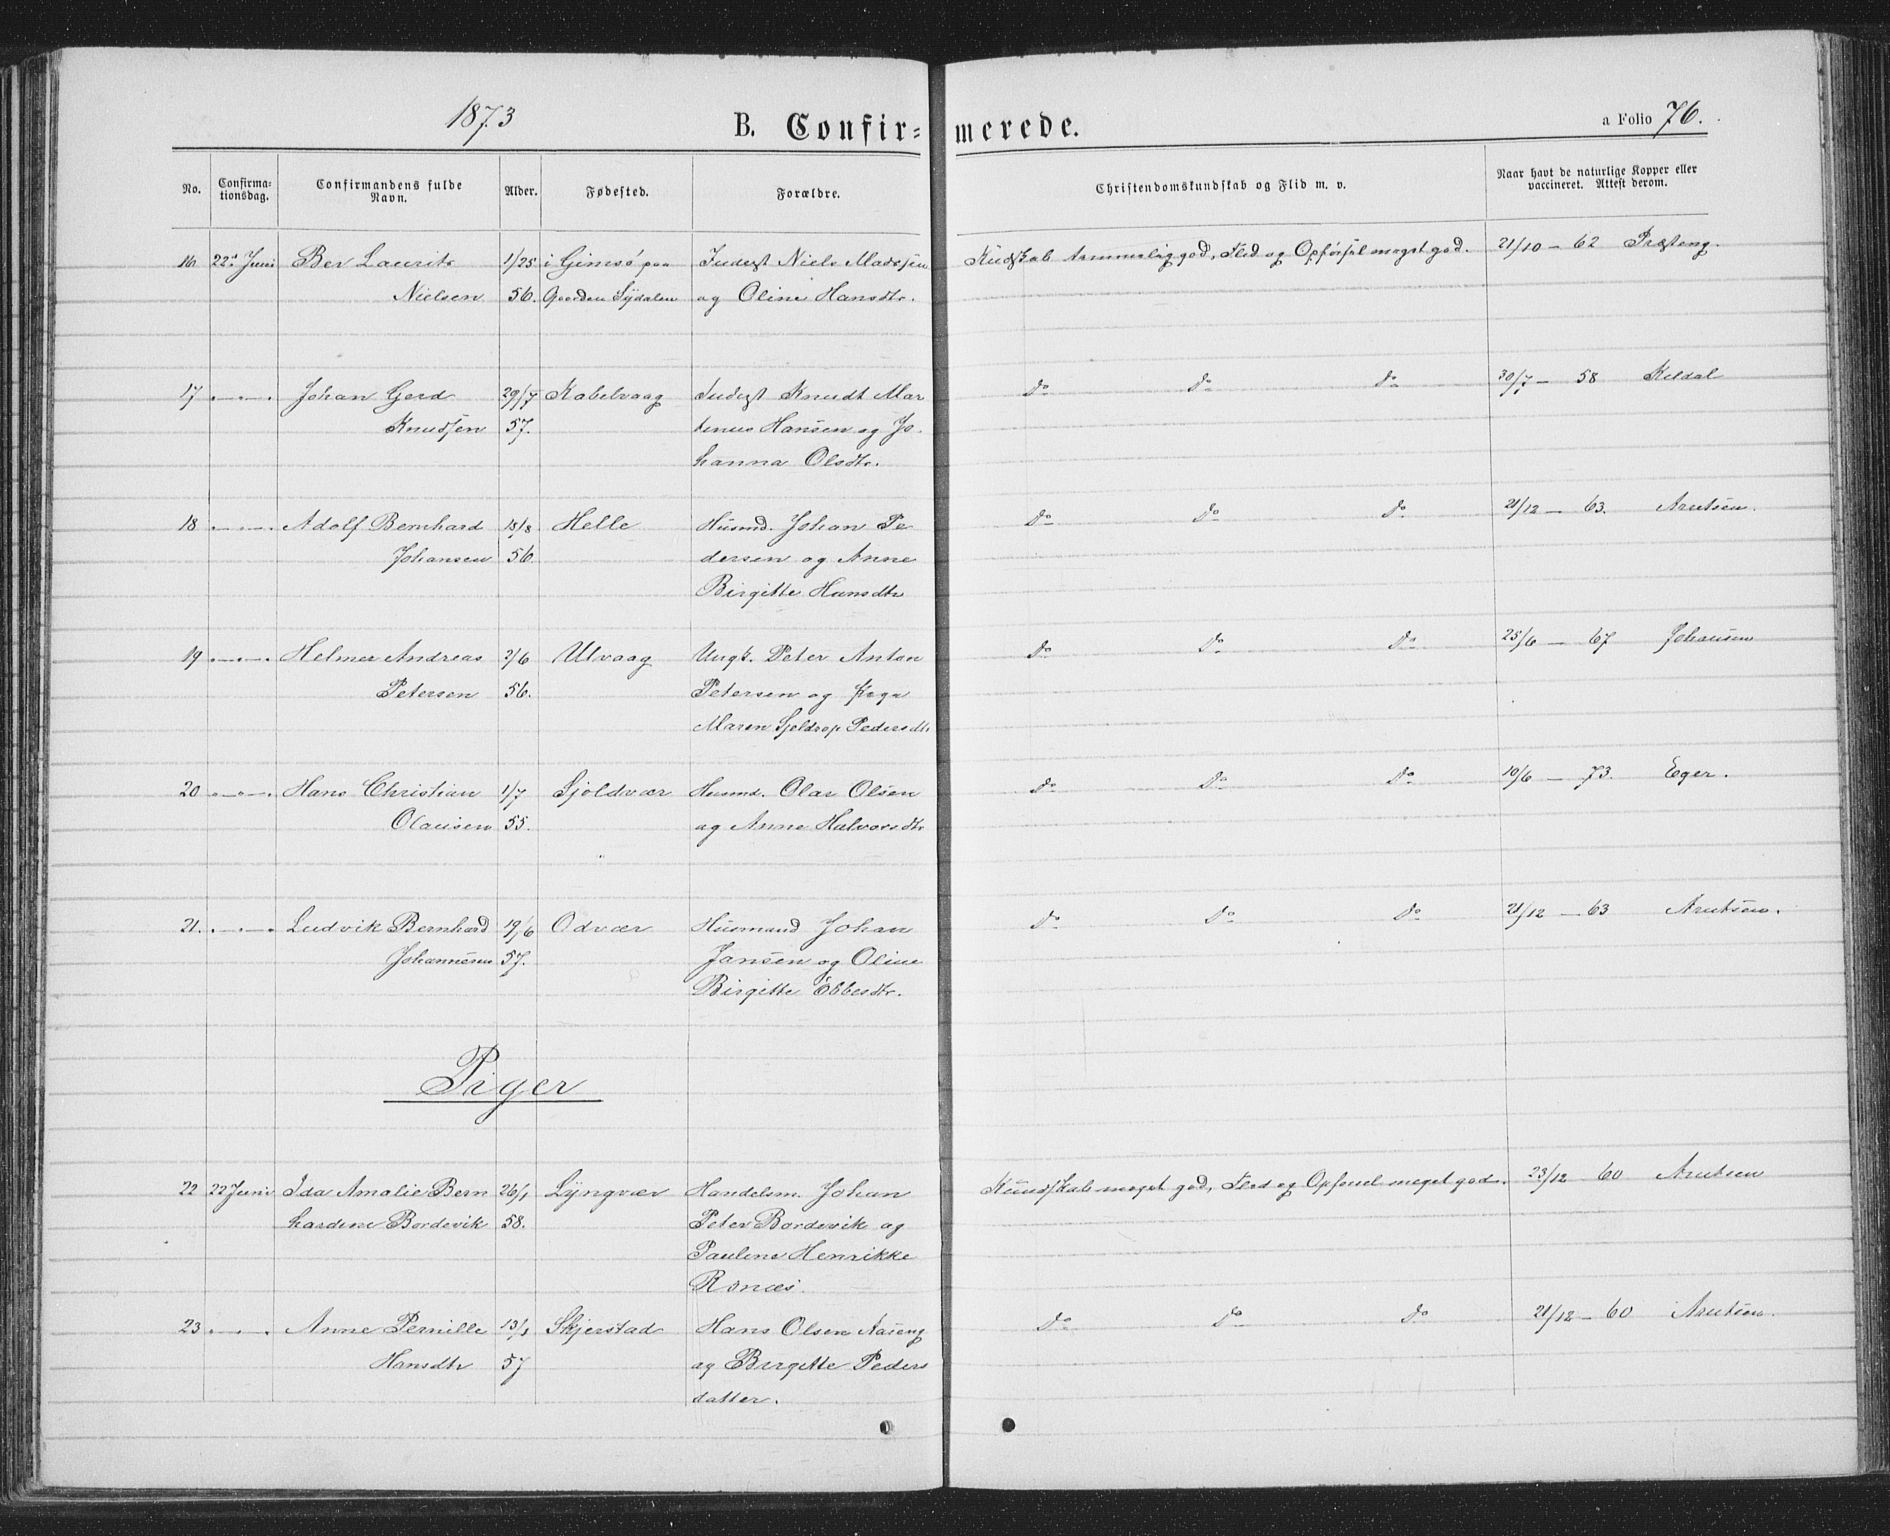 1873 B. Confir= merede. a Folio 76.
No. Confirma= tionsdag. Confirmandens fulde Navn. Alder. Fødested. Forældre. Christendomskundskab og Flid m. v. Naar havt de naturlige Kopper eller vaccineret. Attest derom.
16 22d Juni Ber Laurits 1/25 i Gimsø paa Inderst Niels Madssen Kudskab temmelig god, Flid og Opførsel meget god. 21/10 – 62 Præsteng.
Nielsen 56. Gaarden Sydalen og Oline Hansdtr.
17 Johan Gerd 29/7 Kabelvaag Inderst Knudt Mar do do do 30/7 – 58 Keldal
Knudsen 57. tinus Hansen og Jo-
hanna Olsdtr.
18 Adolf Bernhard 18/8 Helle Husmd. Johan Pe do do do 21/12 – 63. Arntsen.
Johansen 56. dersen og Anne
Birgitte Hansdtr
19 Helmer Andreas 2/6 Ulvaag Ungk. Peter Anton do do do 25/6 – 67 Johansen
Petersen 56. Petersen og Pige
Maren Sjeldrop Pedersdtr
20 Hans Christian 1/7 Sjoldvær Husmd. Olar Olsen do do do 10/6 – 73. Eger.
Olausen 55. og Anne Halvorsdtr
21. Ludvik Bernhard 19/6 Odvær Husmand Johan do do do 21/12 – 63 Arntsen.
Johannesen 57. Jansen og Oline
Birgitte Ebbesdtr.
Piger
22 22 Juni Ida Amalie Bern 26/1 Lyngvær Handelsm. Johan Kundskab meget god, Flid og Opførsel meget god. 23/12 – 60 Arntsen
hardine Bordevik 58. Peter Bordevik og
Pauline Henrikke
Rønæs.
23 Anne Pernille 13/1 Skjerstad Hans Olsen Aaseng do do do 21/12 – 60 Arntsen.
Hansdtr 57 og Birgitte Peders
datter.